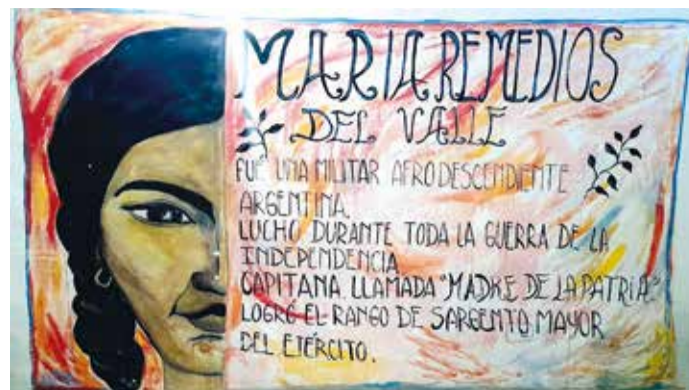 MARIA REMEDIOS
DEL VALLE
FUE UNA MILITAR AFRODESCENDIENTE
ARGENTINA.
LUCHO DURANTE TODA LA GUERRA DE LA
INDEPENDENCIA
CAPITANA. LLAMADA "MADRE DE LA PATRIA."
LOGRÓ EL RANGO DE SARGENTO MAYOR
DEL EJÉRCITO.